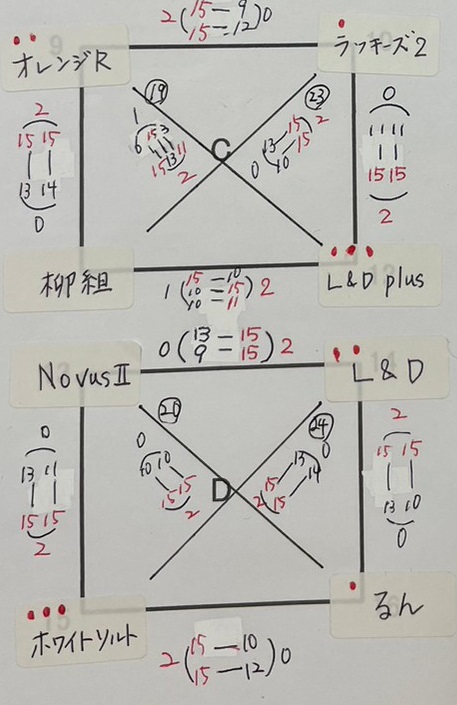 2(15—9)0
15—12
オレンジR
ラッキーズ2
⑲
㉓
2
15 15
13 14
0
1
6 15 3
15 13 11
2
C
15 2
13 15
0 10
0
11 11
15 15
2
柳組
1(15—10)2
10—15
10—11
L&D plus
0(13—15)2
9—15
NovusⅡ
L&D
⑳
㉔
0
13 11
15 15
2
0
10 10
15 15
2
D
0
13 14
15 15
2
2
15 15
13 10
0
ホワイトソルト
2(15—10)0
15—12
るん